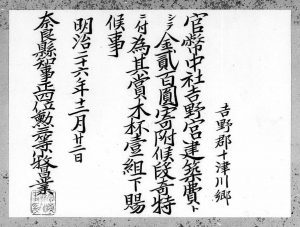 吉野郡十津川郷
官幣中社吉野宮建築費ト
シテ金貳百圓寄附候段奇特
ニ付為其賞木杯壹一組下賜
候事
明治二十六年十二月廿二日
奈良縣知事正四位勲三等牧昌業